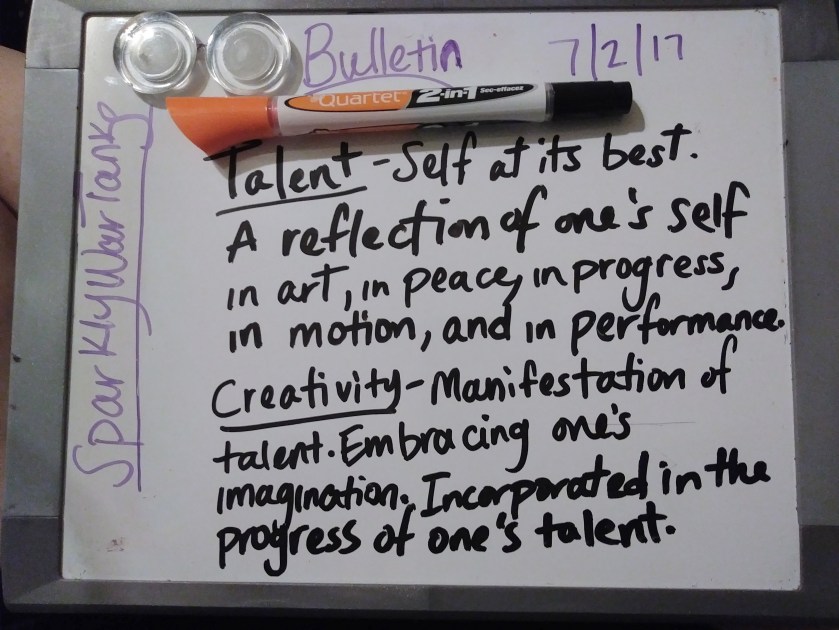 Bulletin 7/2/17
Quartet 2-in-1 Sec-effacez
SparklyWarTanks
Talent - Self at its best.
A reflection of one's self
in art, in peace, in progress,
in motion, and in performance.
Creativity - Manifestation of
talent. Embracing one's
imagination. Incorporated in the
progress of one's talent.